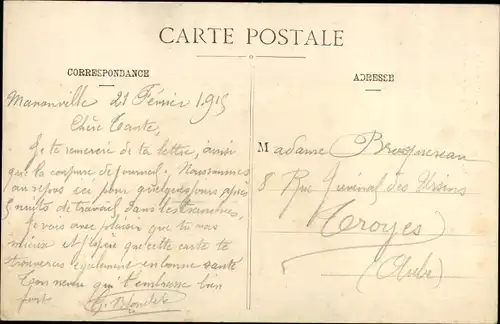 CARTE POSTALE
CORRESPONDANCE
Manonville 21 Février 1915
Chère Tante,
Je te remercie de ta lettre, ainsi
que la coupure de journal. Nous sommes
au repos ici pour quelques jours après
5 nuits de travail dans les tranchées,
Je vois avec plaisir que tu vas
mieux et j'espère que cette carte te
trouvera également en bonne santé
Ton neveu qui t'embrasse bien
fort
ADRESSE
Madame
8 Rue Juvénal des Ursins
Troyes
(Aube)